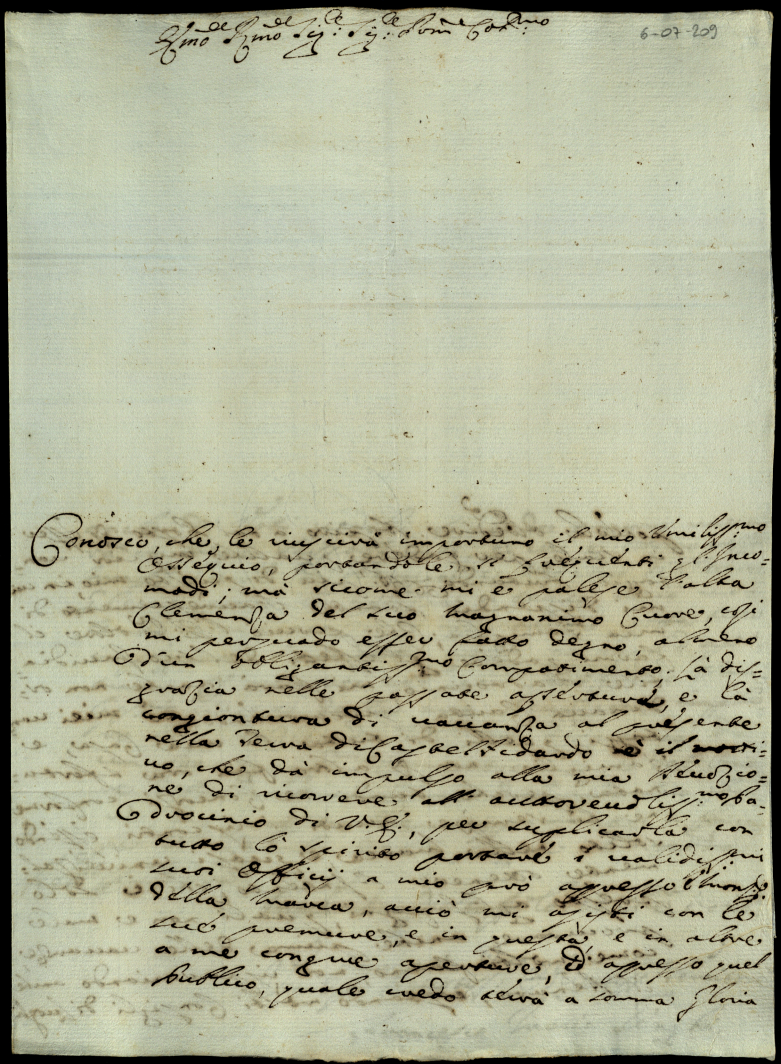 6-07-209
Emo e Rmo Sig.re Sig.re Pron. Col.mo
Conosco, che le riuscirà importuno il mio Umiliss.mo
Ossequio, portandole si frequenti gl'Inco-
modi; mà sicome mi è palese l'alta
Clemenza del suo magnanimo Cuore, così
mi persuado esser fatto degno, almeno
d'un obligantiss.mo Compatimento; La dis-
grazia nelle passate aperture, e la
congiontura di vacanza al presente
nella Terra di Castelfidardo è il moti-
vo, che dà impulso alla mia devozio-
ne di ricorrere all' auttorevoliss.mo Pa-
trocinio di V. E., per suplicarla con
tutto lo spirito portare i validiss.mi
suoi Officij a mio prò appresso Mons.
della Marca, acciò mi assisti con le
sue premure, e in questa, e in altre
a me congrue aperture, et appresso quel
Publico, quale credo serà a somma Gloria